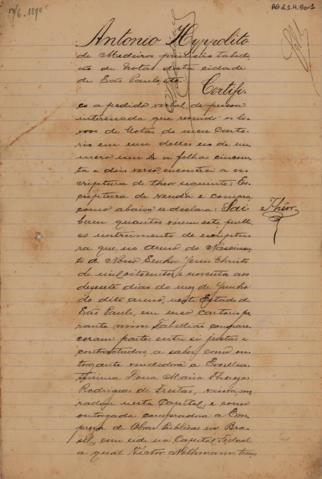 17/6-1890
Antonio Hyppolito
de Medeiros primeiro tabel-
lião de Notas desta cidade
de São Paulo, etc.
Certifi-
co a pedido verbal de pessoa
interessada que revendo os li-
vros de Notas do meu Carto-
rio em um delles sob nu-
mero um a folhas cincoen-
ta e dois verso encontrei a es-
criptura de theor seguinte: Es-
criptura de venda e compra
como abaixo se declara: Sai-
Theor
bam quantos virem este publi-
co instrumento de escriptu-
ra que no Anno do Nascimen-
to de Nosso Senhor Jesus Christo
de mil oitocentos e noventa aos
desesete dias do mez de Junho
do dito anno, neste Estado de
São Paulo, em meu cartorio pe-
rante mim Tabellião compare-
ceram partes entre si justas e
contractadas, a saber, como ou-
torgante vendedora a Excellen-
tissima Dona Maria Thereza
Rodrigues de Freitas, viuva, mo-
radora nesta Capital, e como
outorgada compradora a Em-
preza de Obras Publicas no Bra-
sil, com sede na Capital Federal
a qual Victor Nothmann